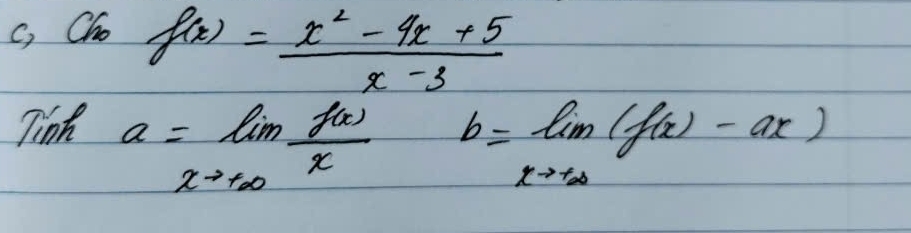 c, Cho f(x) = \frac{x^2 - 4x + 5}{x - 3}
Tính a = \lim_{x \to +\infty} \frac{f(x)}{x} b = \lim_{x \to +\infty} (f(x) - ax)